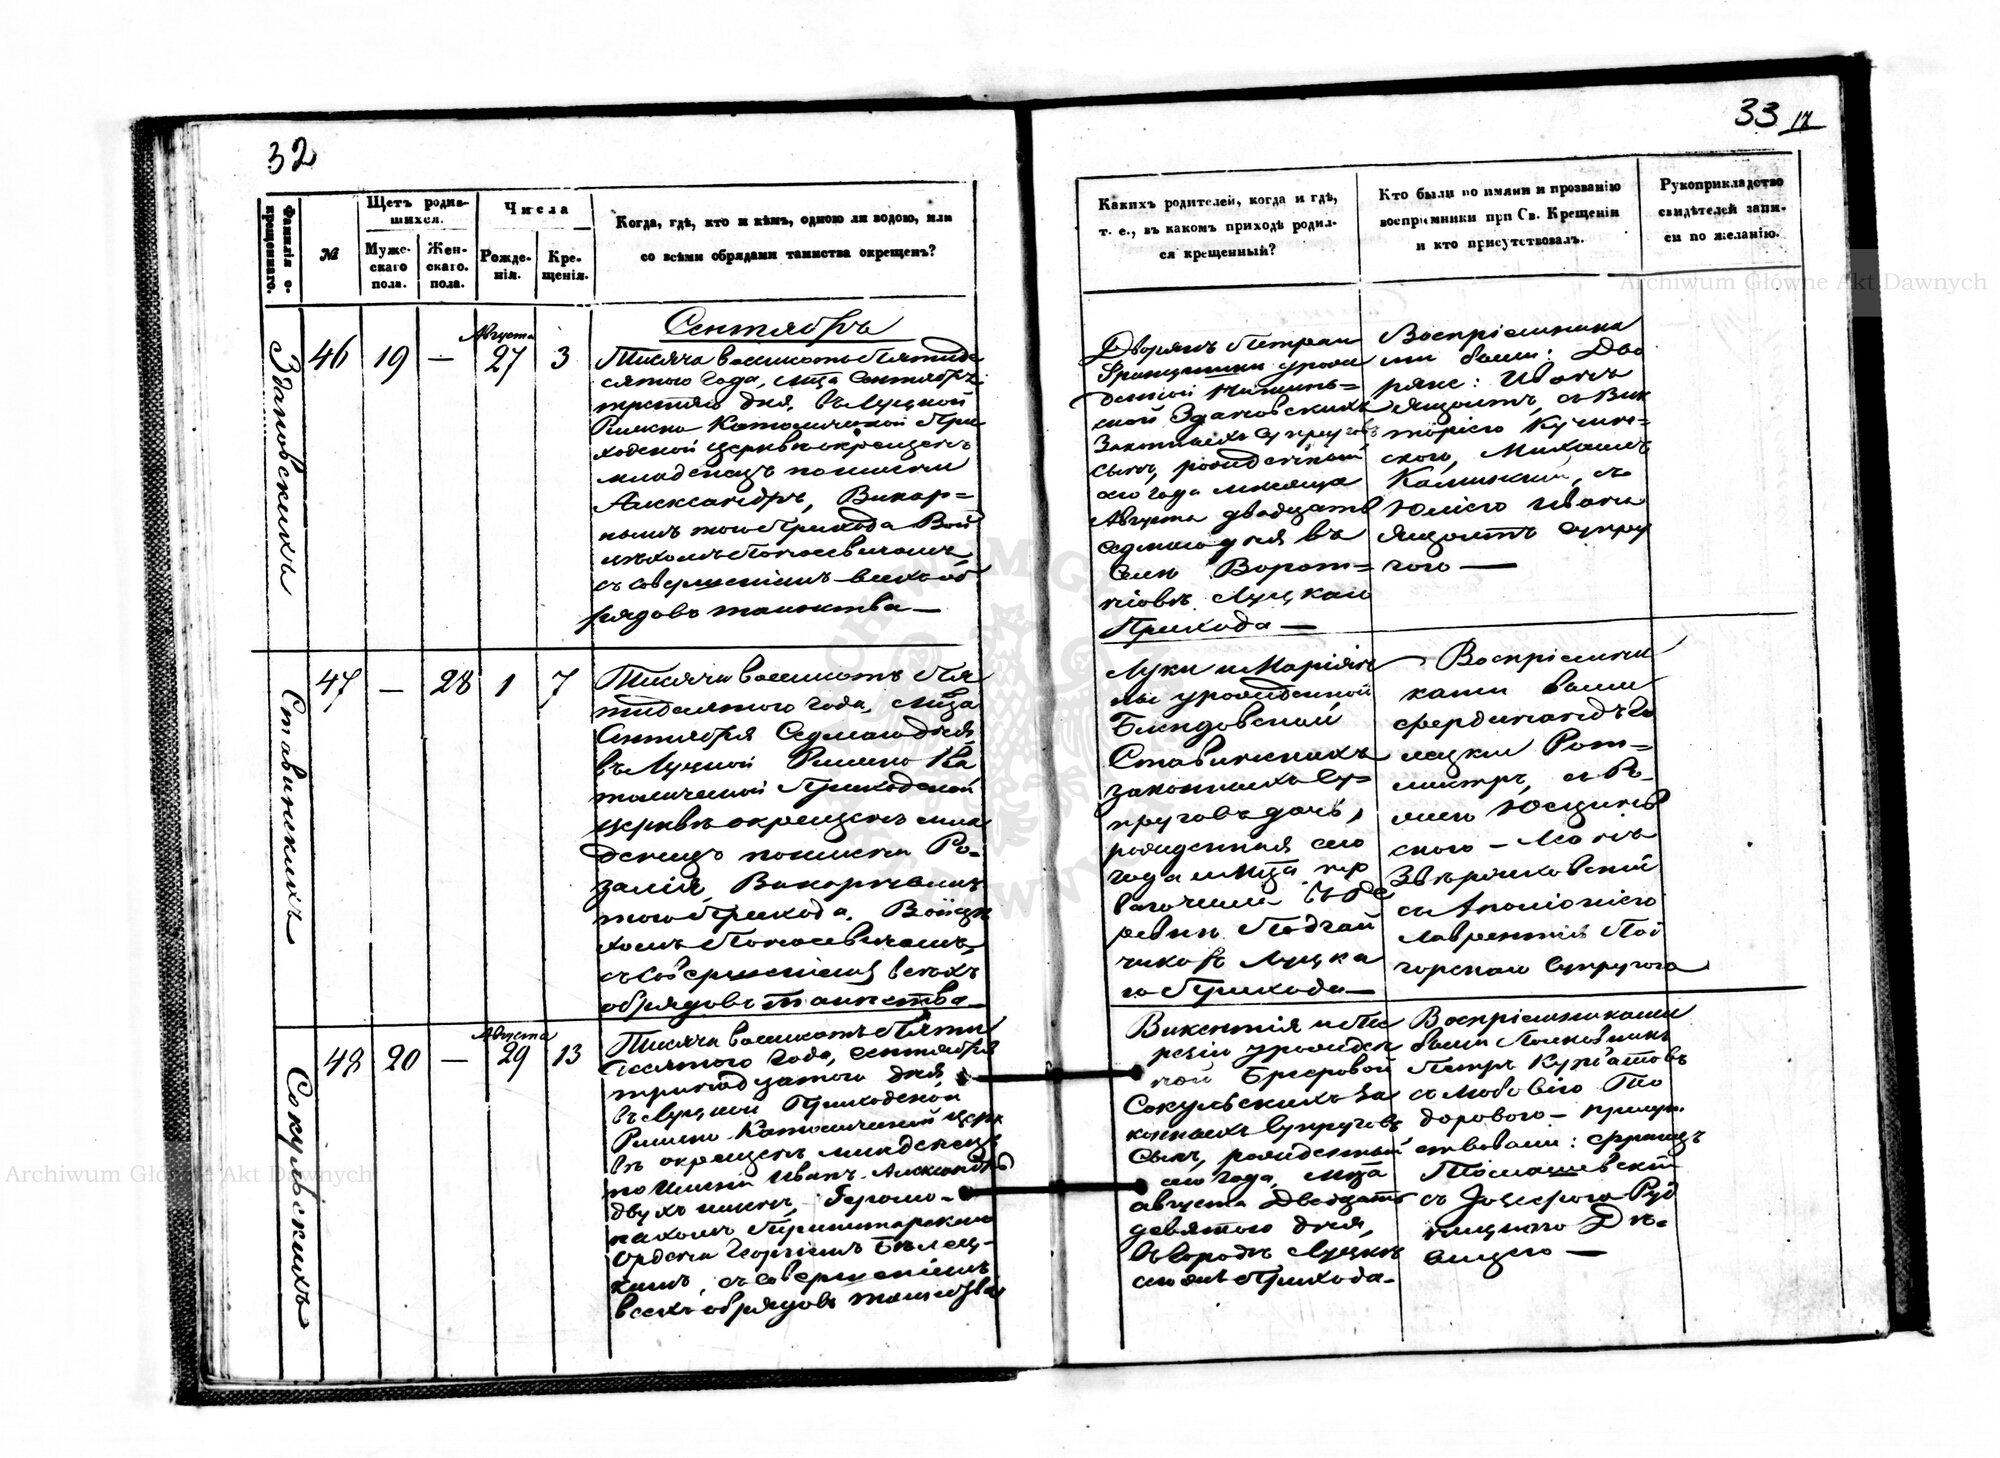 32
Фамилія о-
крещеннаго.
№
Щетъ родив-
шихся.
Муже-
скаго
пола.
Жен-
скаго.
пола.
Числа
Рожде-
нія.
Кре-
щенія.
Когда, гдѣ, кто и кѣмъ, одною ли водою, или
со всѣми обрядами таинства окрещенъ?
Здановскихъ
46
19
—
Августа
27
3
Сентябрь
Тысяча восемьсотъ Пятиде
сятого Года, мца Сентября
третяго дня, въ Луцкой
Римско Католической При
ходской церквѣ окрещенъ
младенецъ по имени
Александръ, Викар=
нымъ того Прихода Вой
цѣхомъ
съ совершеніемъ всехъ об
рядовъ таинства —
Ставинскихъ
47
—
28
1
7
Тысяча восемьсотъ Пя
тидесятого Года, мца
Сентября Седмаго дня
въ Луцкой Римско Ка
толической Приходской
церквѣ окрещенъ мла
денецъ по имени Ро-
залія, Викарнымъ
того Прихода, Войцѣ
хомъ
съ совершеніемъ всехъ
обрядовъ таинства —
Сокульскихъ
48
20
—
Августа
29
13
Тысяча восемьсотъ Пяти
десятого Года, Сентября
тринадцатого дня
въ Луцкой Приходской
Римско Католической церк
вѣ окрещенъ младенецъ
по имени Иванъ Александръ
двухъ именъ, Іеромо-
нахомъ Тринитарскаго
Ордена Георгіемъ Бѣлец-
кимъ, съ совершеніемъ
всехъ обрядовъ таинства
33 17
Какихъ родителей, когда и гдѣ,
т. е., въ какомъ приходѣ родил-
ся крещенный?
Кто были по имяни и прозванію
воспріемники при Св. Крещеніи
и кто присутствовалъ.
Рукоприкладство
свидѣтелей запи-
си по желанію.
Дворянъ Петра и
Францишки урож
денной
ской Здановскихъ
Законныхъ Супруговъ
сынъ, рожденный
сего Года месяца
Августа двадцать
седмого дня въ
Селѣ Ворот=
нёвѣ Луцкаго
Прихода —
Воспріемника
ми были: Дво
ряне: Иванъ
съ Вик
торіею Кучин=
скою, Михаилъ
Калинскій, съ
Юліею Ивана
супру
гою —
Луки и Маріян
ны урожденной
Блендовской
Ставинскихъ
законныхъ Су=
пруговъ дочь,
рожденная сего
года и мца пер
ваго числа въ де
ревни Подгай
цахъ Луцка
го Прихода —
Воспріемни
ками были
Фердинандъ Го
лецкій Рот=
мистръ, съ Ро-
скою —
Звѣрховскій
съ Аполіоніею
Лаврентія Под
горскаго Супругою
Викентія и Те
резіи урожден
ной Брезовой
Сокульскихъ за
конныхъ Супруговъ
сынъ, рожденный
сего Года, мца
августа Двадцать
девятого дня,
въ городѣ Луцкѣ
сего же Прихода —
Воспріемниками
были Полковникъ
Петръ Курватовъ
съ Любовію Тео
доровою — присут
ствовали: Францъ
Томашевскій
съ Іозефою Руд
ницкою Дѣ=
вицею —